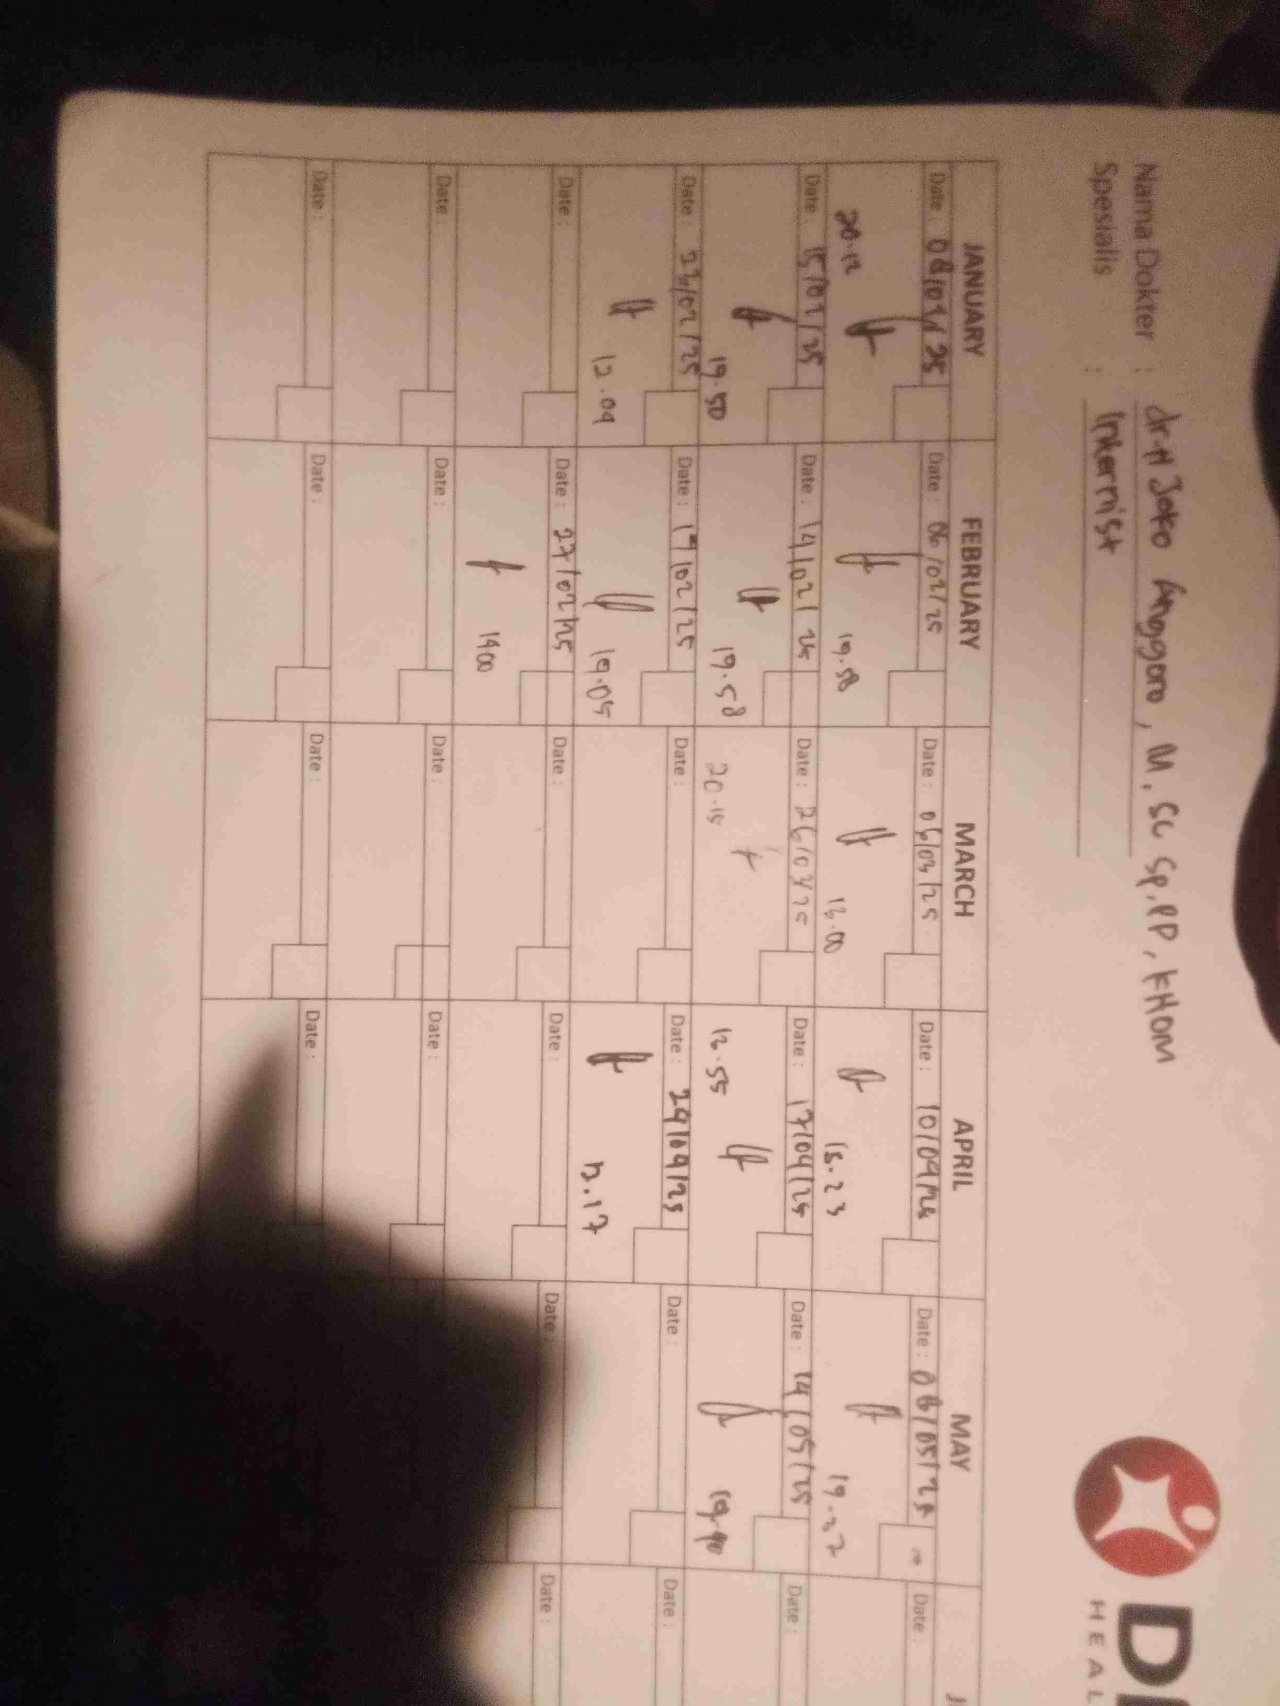 Nama Dokter : dr. H Joko Anggoro, M. Sc Sp.PD, KHOM
Spesialis : Internist
D
HEAL
JANUARY FEBRUARY MARCH APRIL MAY
Date : 08/01/25 Date : 06/02/25 Date : 06/03/25 Date : 10/04/25 Date : 08/05/25 Date :
20.12 19.58 12.00 15.23 19.37
Date : 15/01/25 Date : 14/02/25 Date : 26/03/25 Date : 17/04/25 Date : 14/05/25 Date :
19.50 19.58 20.15 12.55 19.40
Date : 23/01/25 Date : 19/02/25 Date : Date : 24/04/25 Date : Date :
12.09 19.05 12.17
Date : Date : 27/02/25 Date : Date : Date Date :
1400
Date Date : Date : Date :
Date : Date : Date : Date :